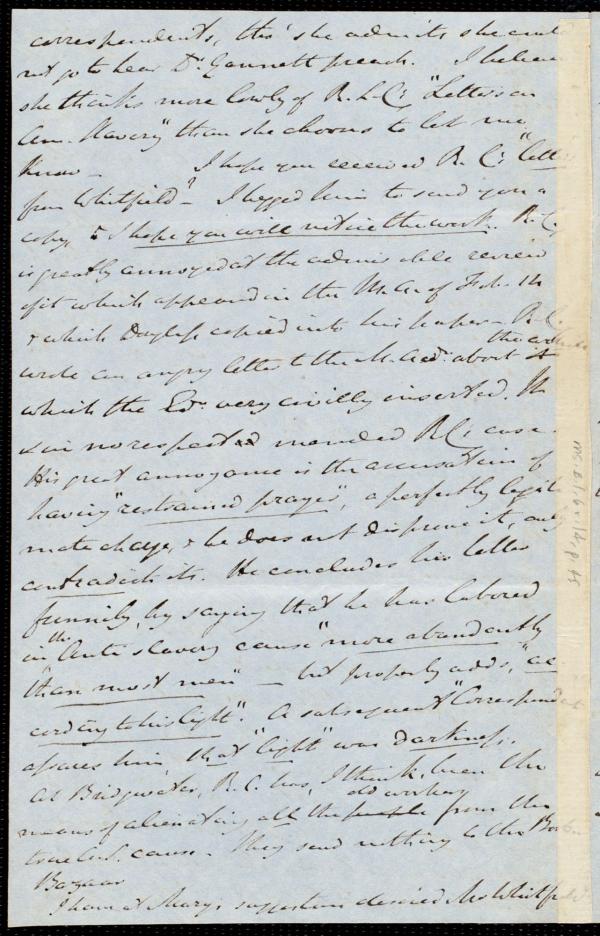 correspondents, tho' she admits she could
not go to hear Dr. Gannett preach. I believe
she thinks more lowly of R. L. C's "Letters on
Am. Slavery" than she chooses to let me
know - I hope you received R. C's "letter
from Whitfield" - I begged him to send you a
copy, & I hope you will notice the work. R. C.
is greatly annoyed at the admirable review
of it which appeared in the M. A. of Feb. 14
& which Douglass copied into his paper - R. C.
wrote an angry letter to the M. A. Edr. about it
which the Edr. very civilly inserted. It
in no respect mended R C's case.
His great annoyance is the accusation of
having "restrained prayer", a perfectly legiti
mate charge, & he does not disprove it, only
contradicts. He concludes his letter
funnily, by saying that he has labored
in the Anti slavery cause "more abundantly
than most men" - but properly adds, "ac
cording to his light". A subsequent "Correspondent
assures him that "light" was darkness.
At Bridgwater, R. C. has, I think, been the
means of alienating all the old workers from the
true A. S. cause. They send nothing to the Boston
Bazaar
I have at Mary's suggestion desired Mrs Whitfield